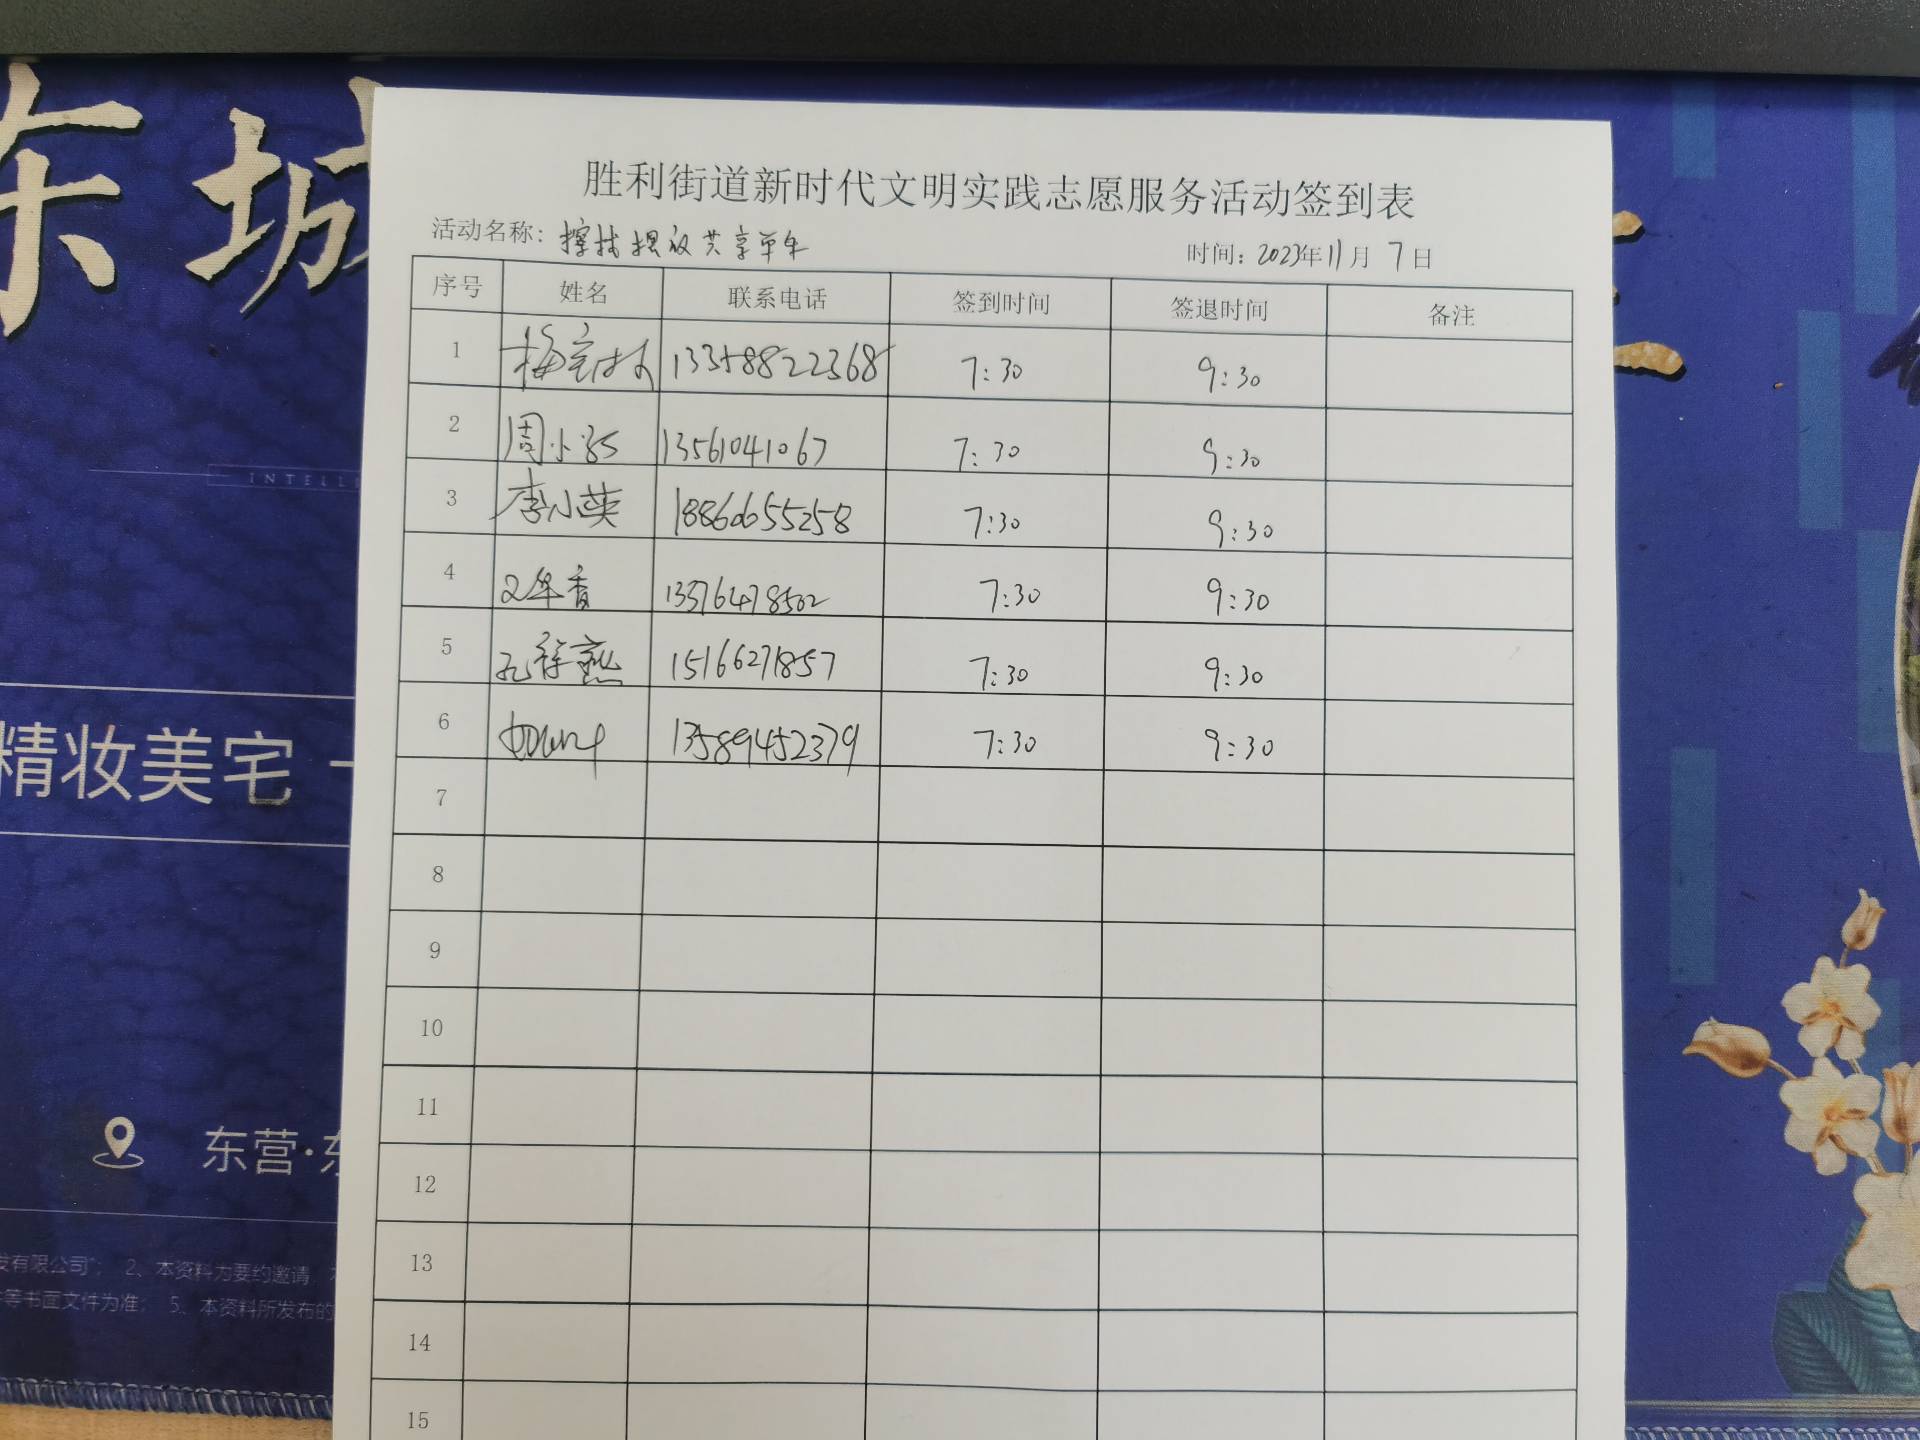 东城
INTELLE
精妆美宅
东营·东
发有限公司"; 2、本资料为要约邀请,
等书面文件为准; 5、本资料所发布的
胜利街道新时代文明实践志愿服务活动签到表
活动名称: 擦拭摆放共享单车 时间: 2023年11月7日
序号 姓名 联系电话 签到时间 签退时间 备注
1 13358822368 7:30 9:30
2 周小 13561041067 7:30 9:30
3 李小英 18860655258 7:30 9:30
4 7:30 9:30
5 孔 15166271857 7:30 9:30
6 13589452379 7:30 9:30
7
8
9
10
11
12
13
14
15